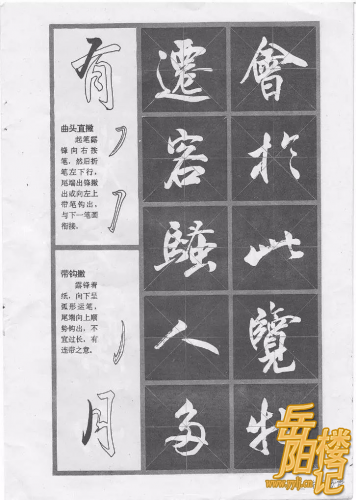 會於此覽物
遷客騷人多
有
曲头直撇
起笔露
锋向右按
笔，然后折
笔左下行，
尾端出锋撇
出或向左上
带笔钩出，
与下一笔圆
衔接。
带钩撇
露锋着
纸，向下呈
弧形运笔，
尾端向上顺
势钩出，不
宜过长，有
连带之意。
月
岳阳楼记
www.yylj.co